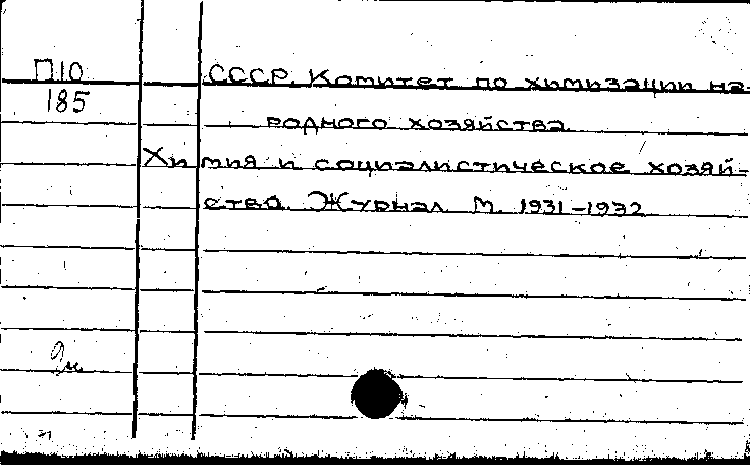 П10 СССР. Комитет по химизации на-
185
родного хозяйства.
Химия и социалистическое хозяй-
ство. Журнал. М. 1931-1932